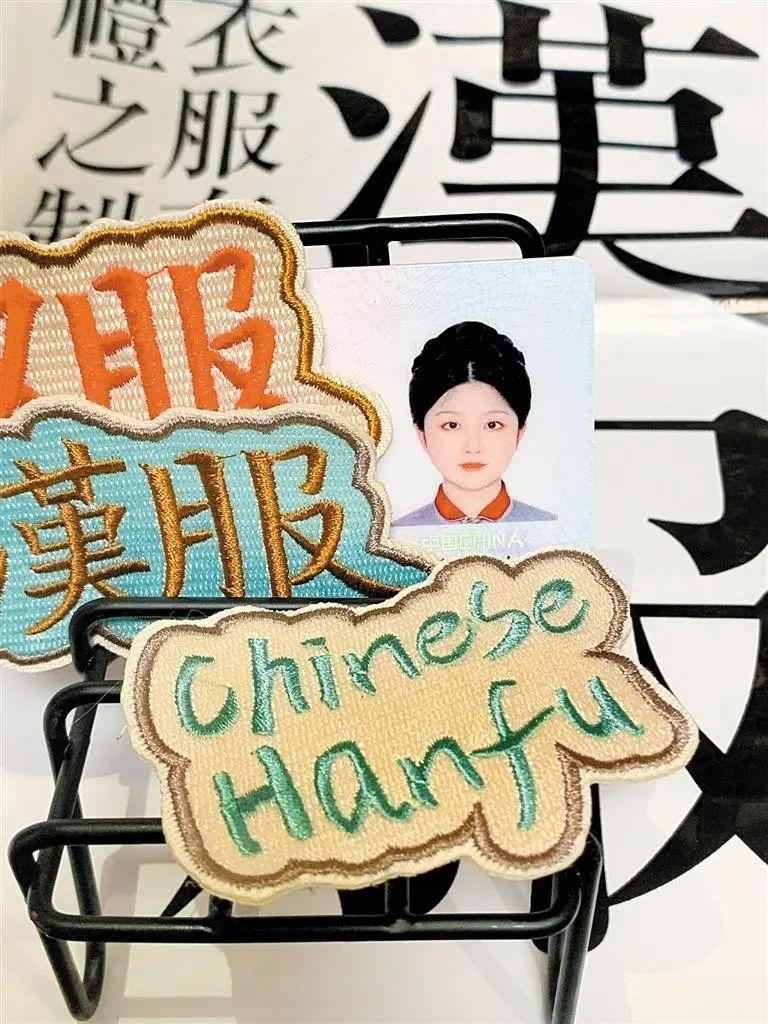 漢
衣服
禮之制
服
漢服
中国CHINA
Chinese
Hanfu